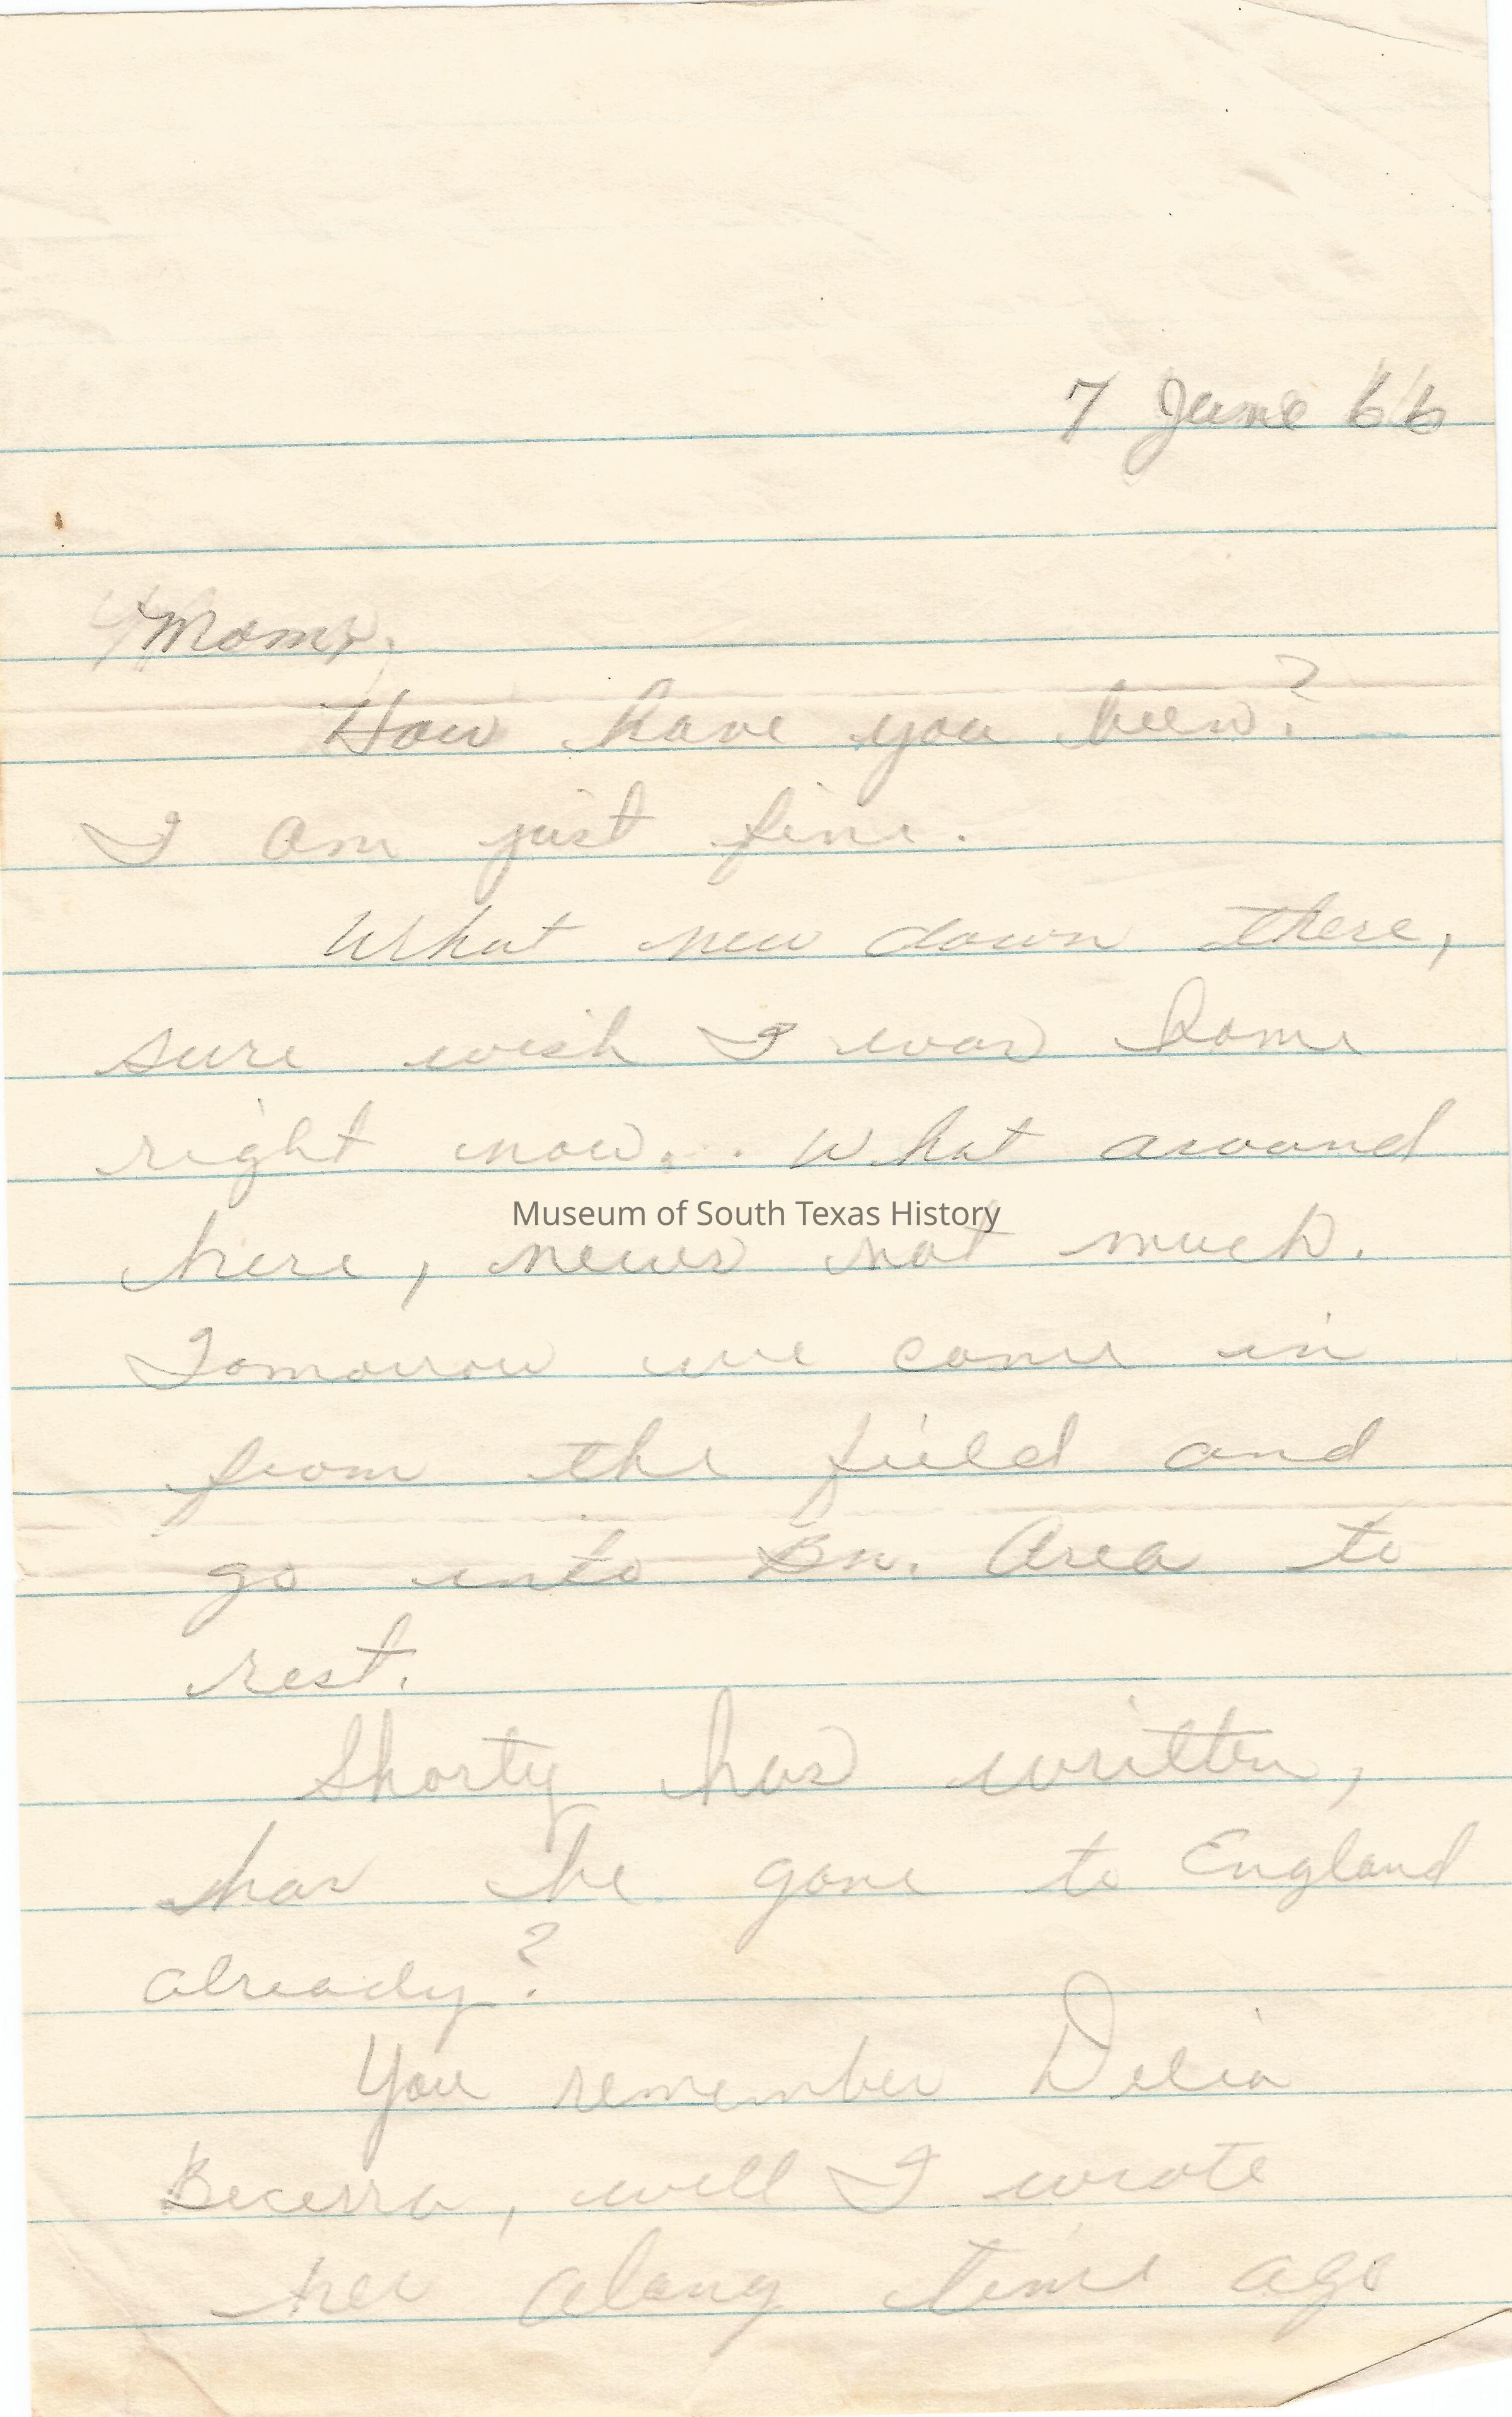 7 June 66
Mom,
How have you been?
I am just fine.
What new down there,
sure wish I was home
right now. What around
Museum of South Texas History
here, news not much.
Tomorrow we come in
from the field and
go into Bn. Area to
rest.
Shorty has written,
has he gone to England
already?
You remember Delia
Becerra, well I wrote
her along time ago